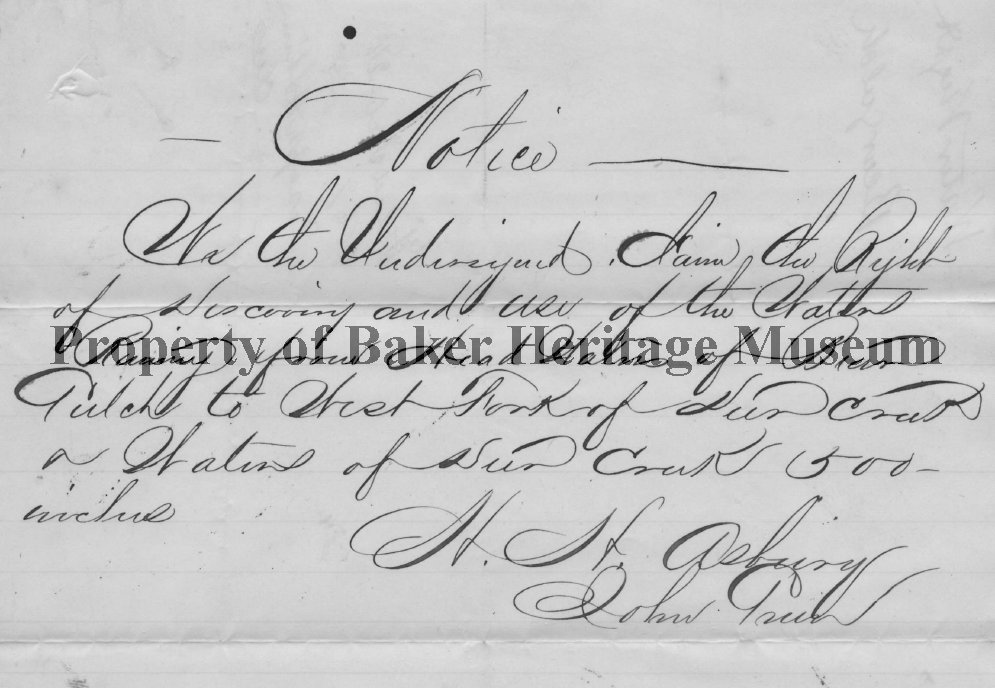 — Notice —
We the Undersigned Claim the Right
of Discovry and use of the Waters
Property of Baker Heritage Museum
Runing from Head Waters of Bear
Gulch to West Fork of Deer Creek
or Waters of Deer Creek 1500
inches
H. H. Asbury
John